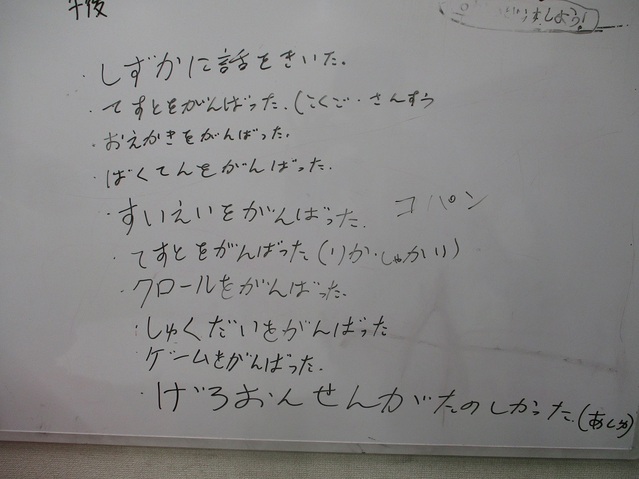 午後
しよう!
・しずかに話をきいた.
・てすとをがんばった.(こくご・さんすう
・おえかきをがんばった.
・ばくてんをがんばった.
・すいえいをがんばった. コパン
・てすとをがんばった(りか・しゃかい)
・クロールをがんばった.
・しゅくだいをがんばった
・ゲームをがんばった.
・げろおんせんがたのしかった.